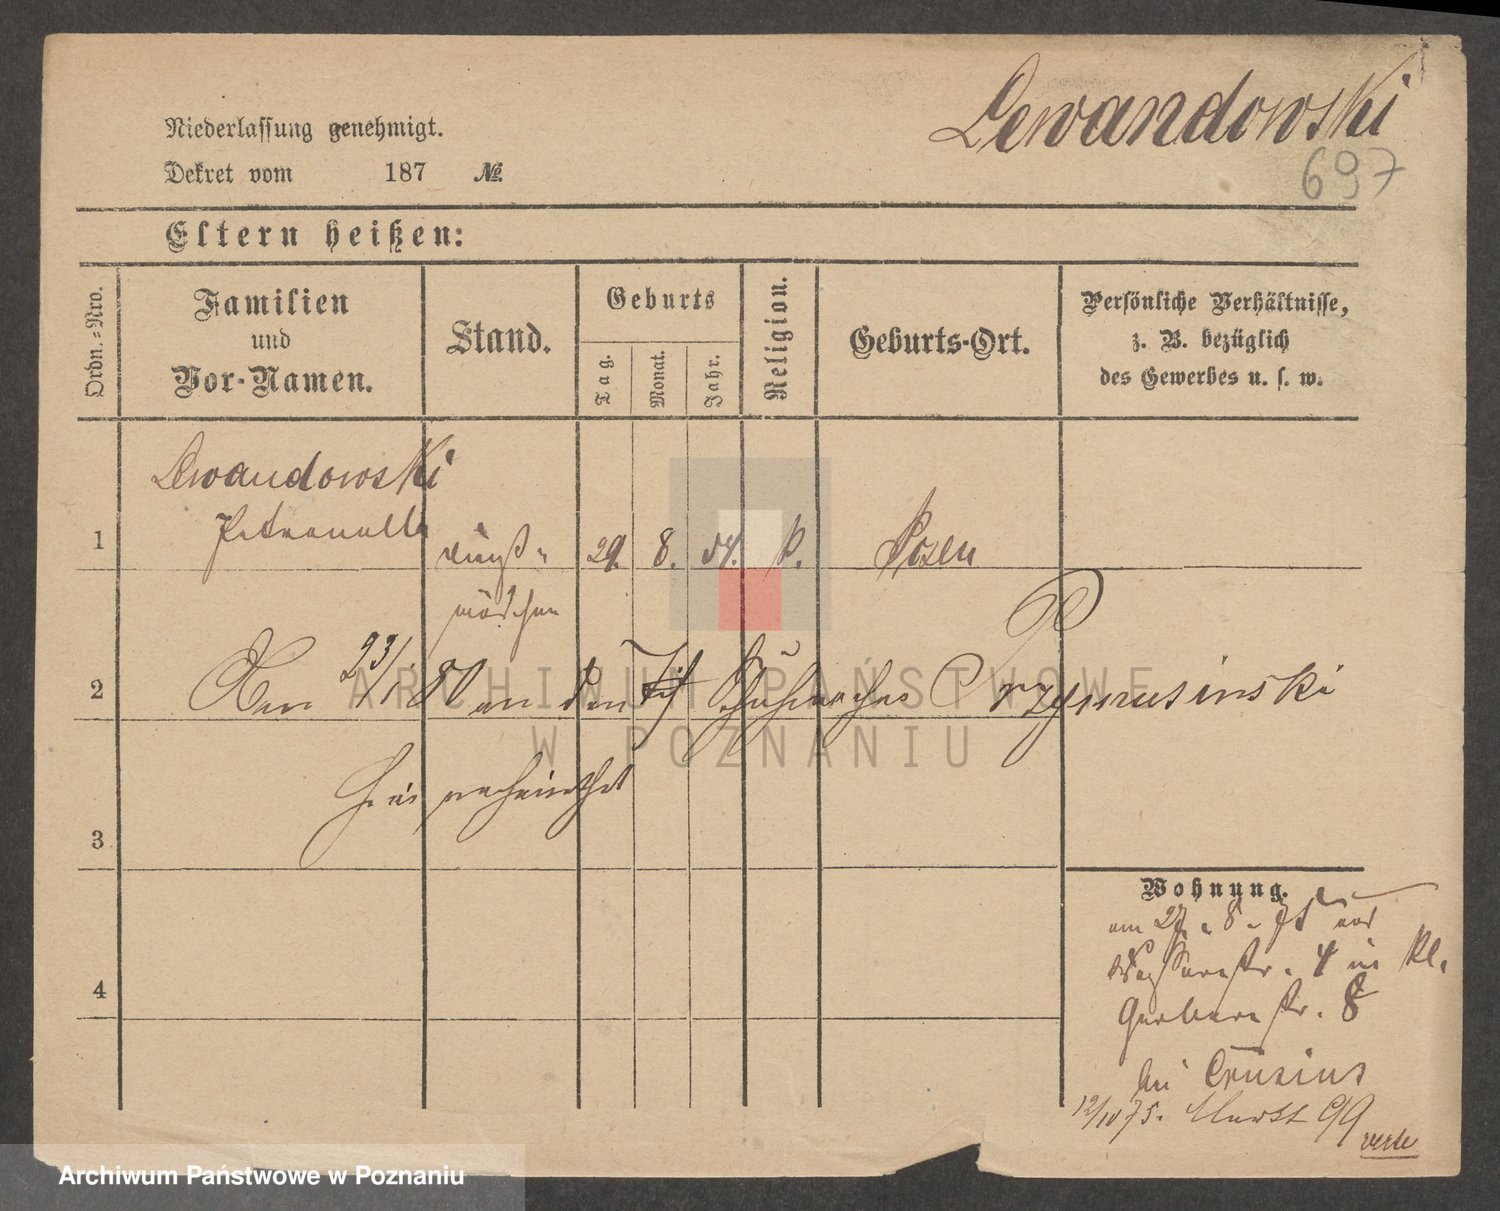 Lewandowski
697
Niederlassung genehmigt.
Dekret vom 187 №
Eltern heißen:
Ordn.-Nro.
Familien
und
Vor-Namen.
Stand.
Geburts
Tag.
Monat.
Jahr.
Religion.
Geburts-Ort.
Persönliche Verhältnisse,
z. B. bezüglich
des Gewerbes u. s. w.
Lewandowski
Petronella
1
Dienst-
29. 8. 54. k. Posen
mädchen
2
Am 23/1 80 an den Schuhmacher Przymusinski
hier verheirathet
3
Wohnung.
am 27. 8. 75 von
str. 4 in kl.
4
Gerberstr. 8
bei Crusius
12/10 75. Markt 99
verte
ARCHIWUM PAŃSTWOWE
W POZNANIU
Archiwum Państwowe w Poznaniu